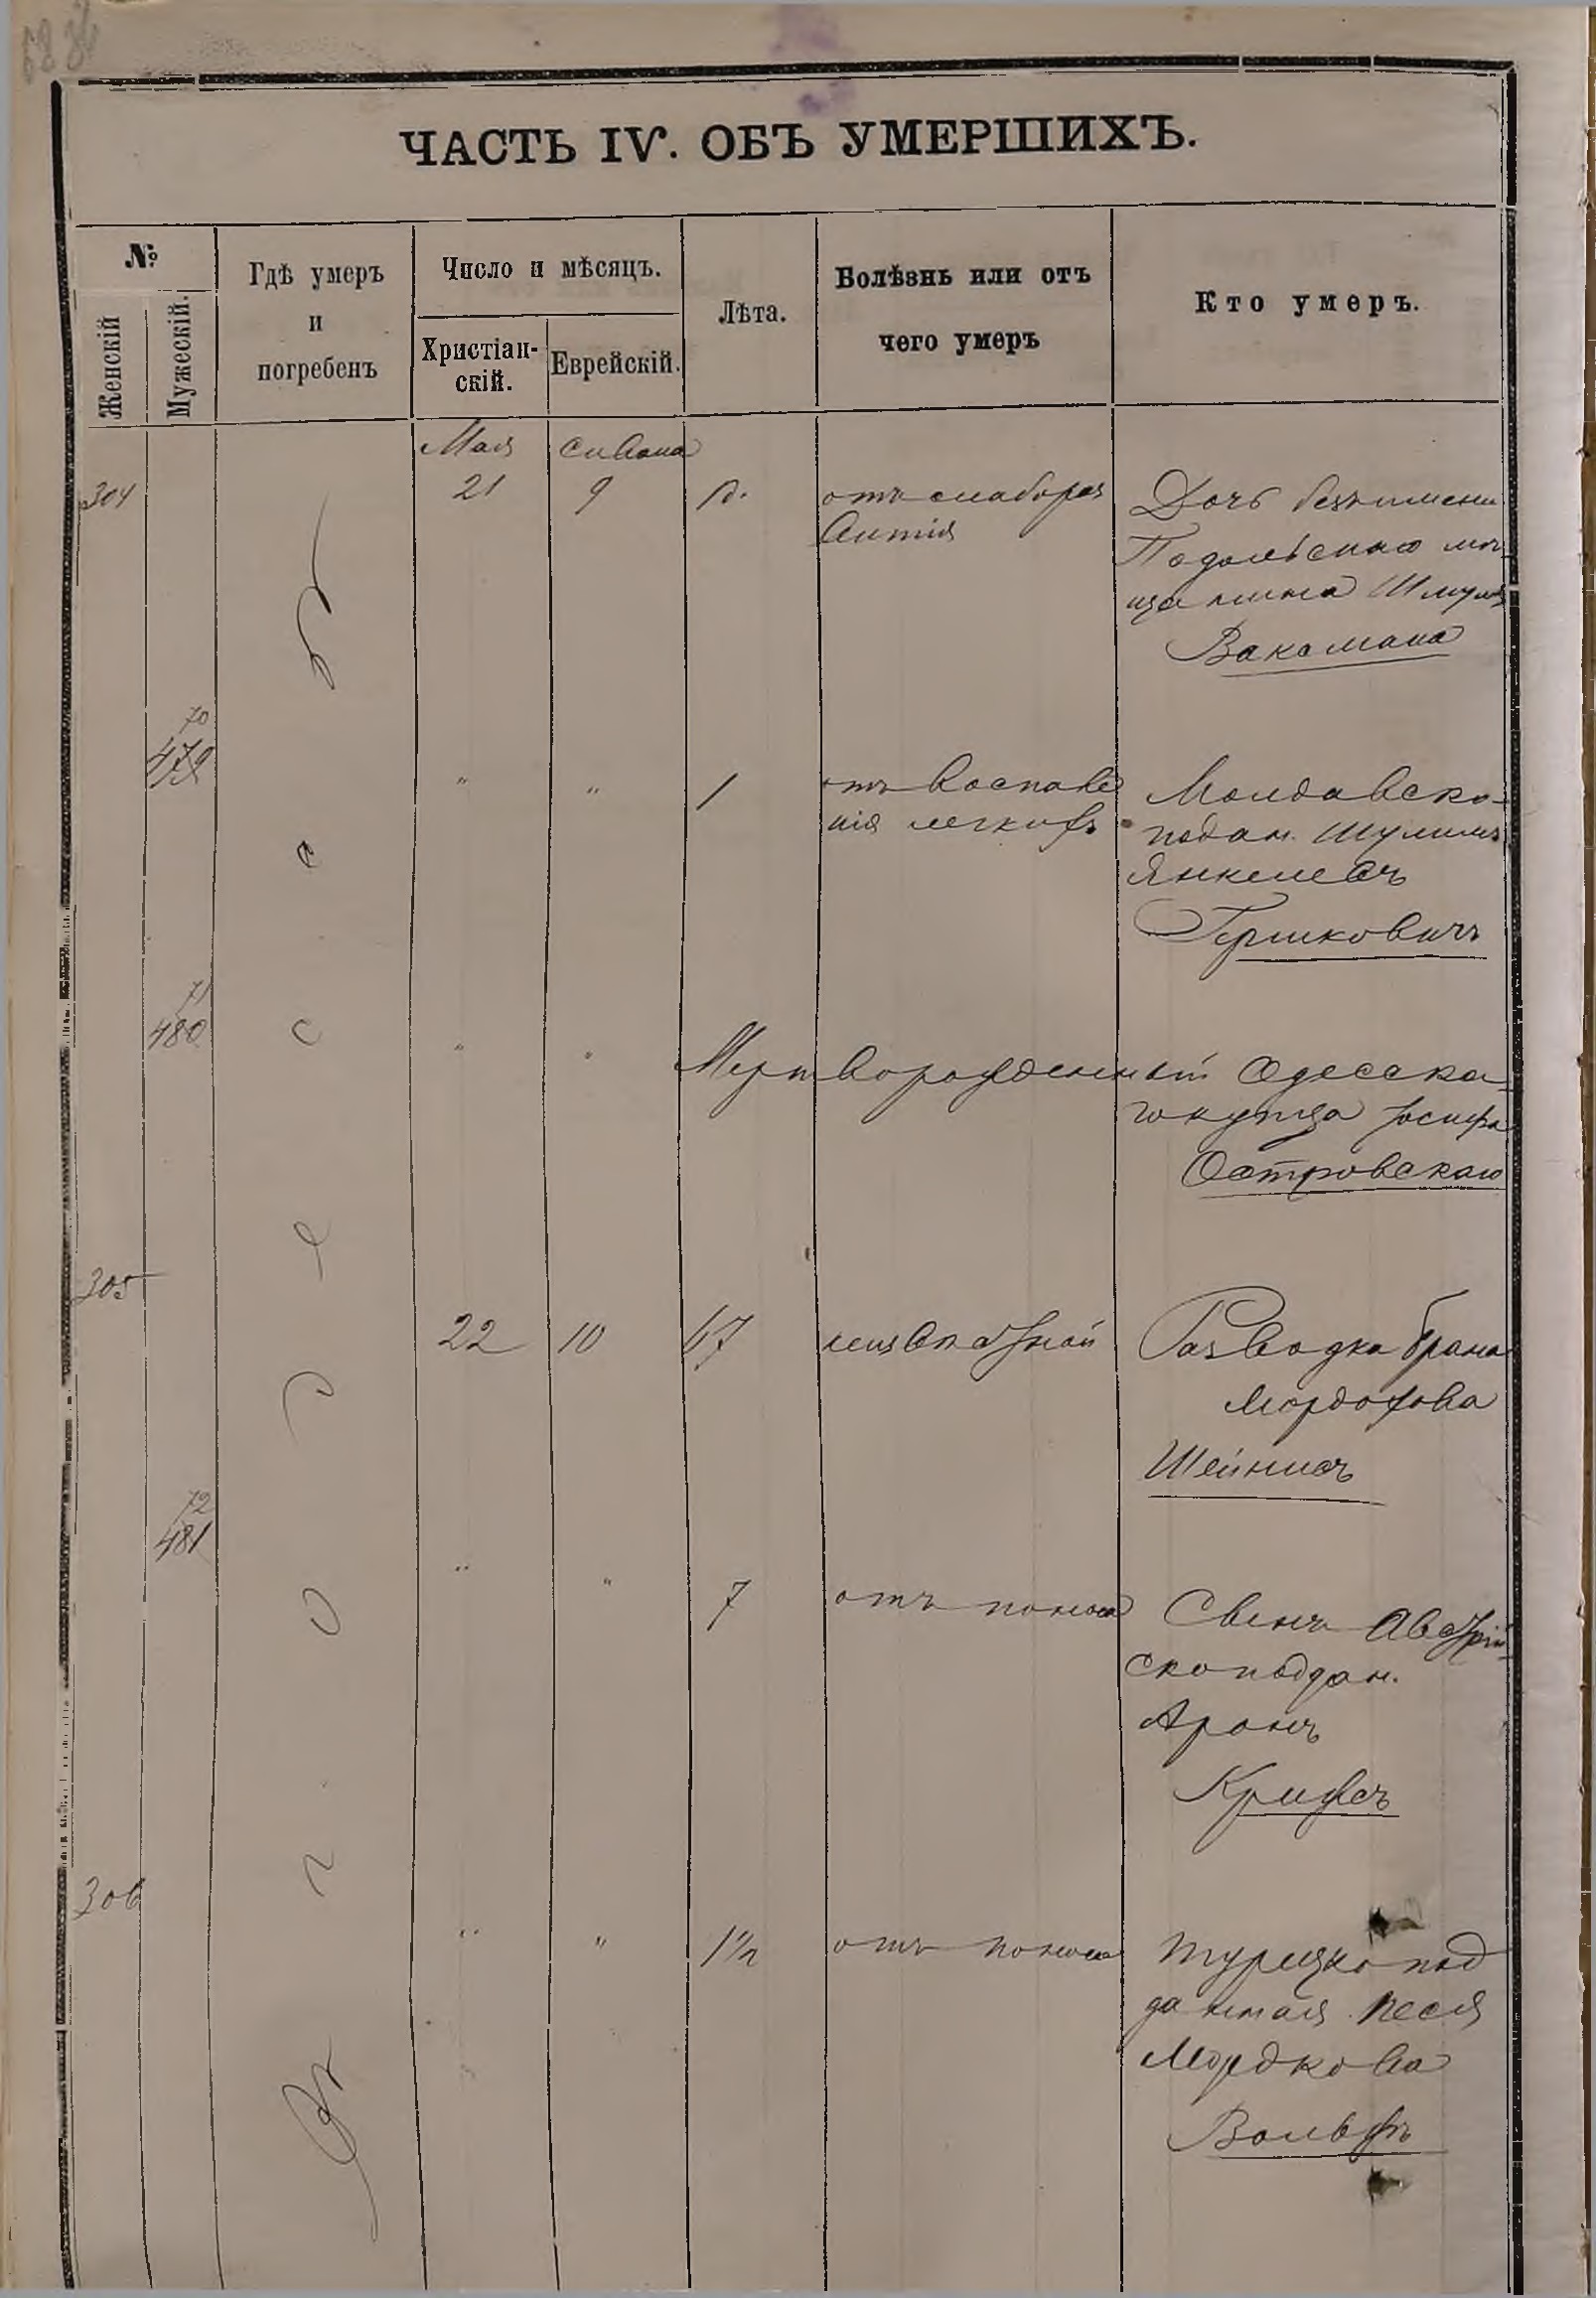 ЧАСТЬ IV. ОБЪ УМЕРШИХЪ.
№
Женскій
Мужескій.
Гдѣ умеръ
и
погребенъ
Число и мѣсяцъ.
Христіан-
скій.
Еврейскій.
Лѣта.
Болѣзнь или отъ
чего умеръ
Кто умеръ.
Мая
Сивана
304
21
9
отъ слабораз
витія
Дочь безъ имени
Подольскаго мѣ-
щанина Шмуля
Ваксмана
70
479
"
"
1
отъ воспале
нія легкихъ
Молдавско-
подан. Шулимъ
Янкелевъ
Гершковичъ
71
480
"
"
Мертворожденный Одесска-
го купца Іосифа
Островскаго
305
22
10
67
неизвѣстной
Разводка Брана
Мордохова
Шейнисъ
72
481
"
"
7
отъ поноса
Сынъ Австрій-
скоподдан.
Аронъ
306
"
"
1½
отъ поноса
Турецкопод
данная Песя
Мордкова
Вольфъ